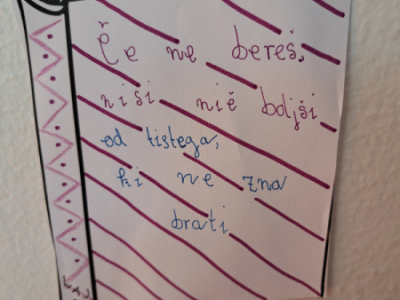 Če ne bereš,
nisi nič boljši
od tistega,
ki ne zna
brati